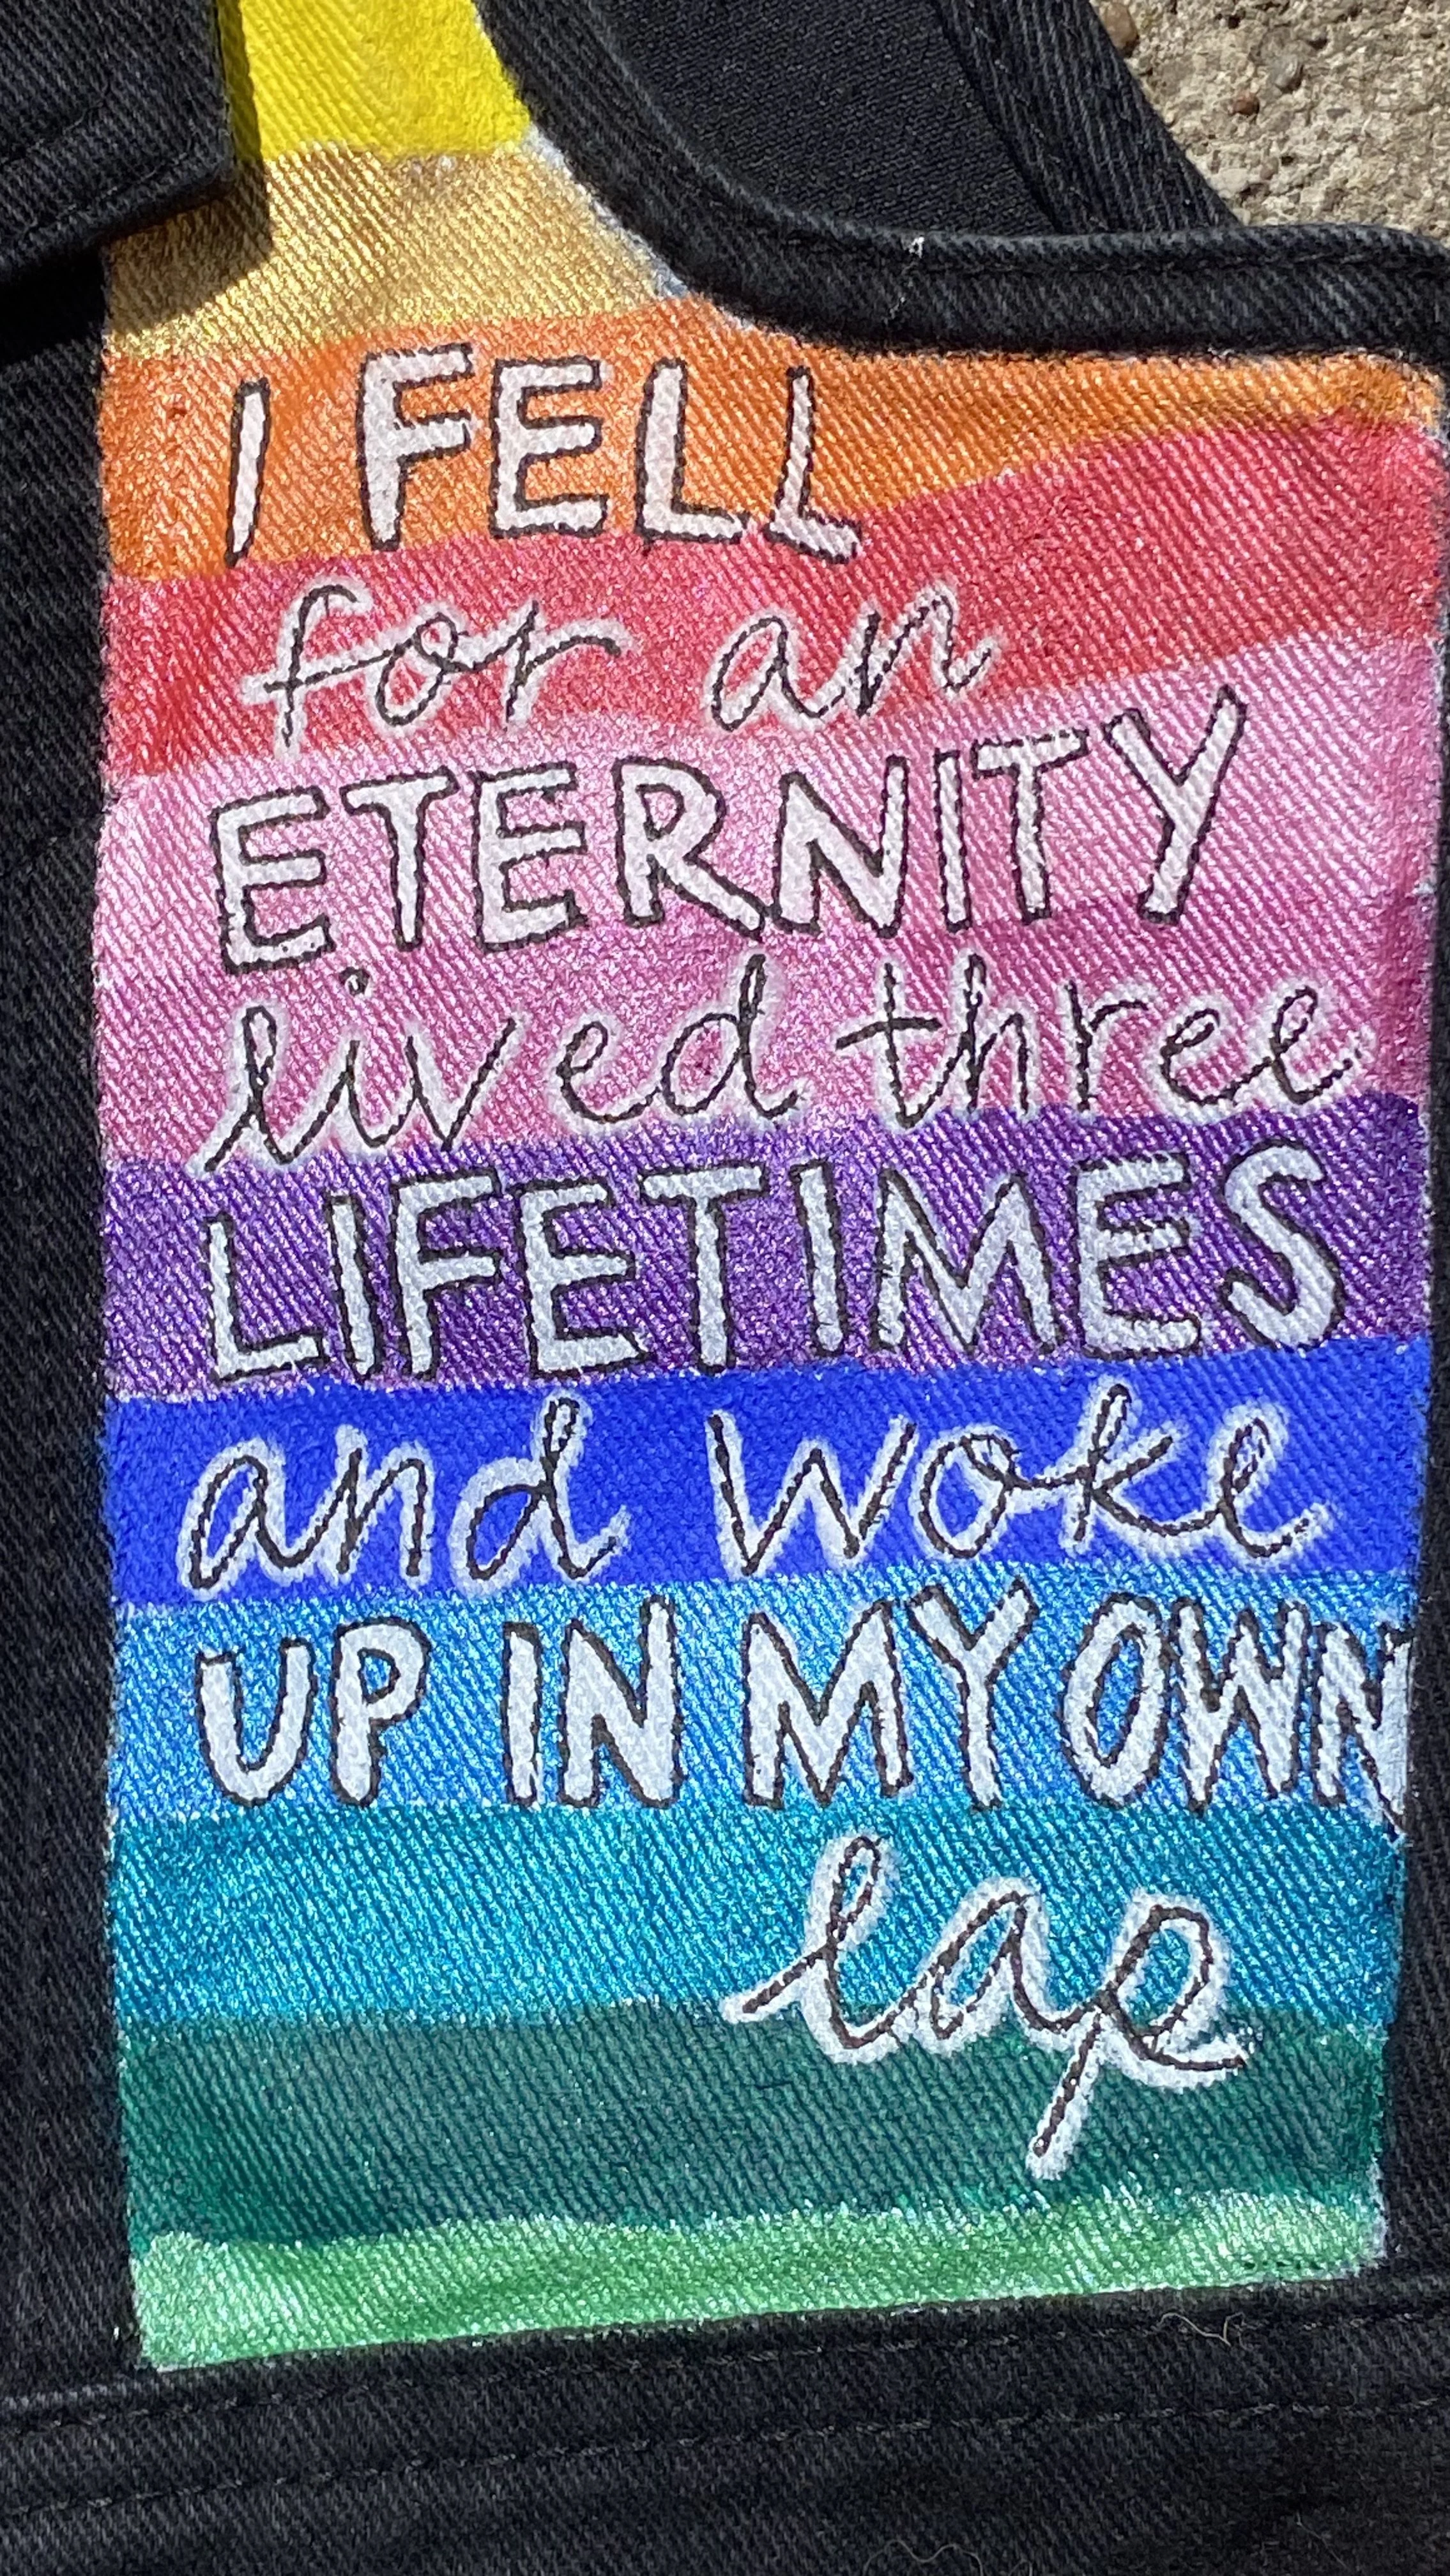 I FELL
for an
ETERNITY
lived three
LIFETIMES
and woke
UP IN MY OWN
lap